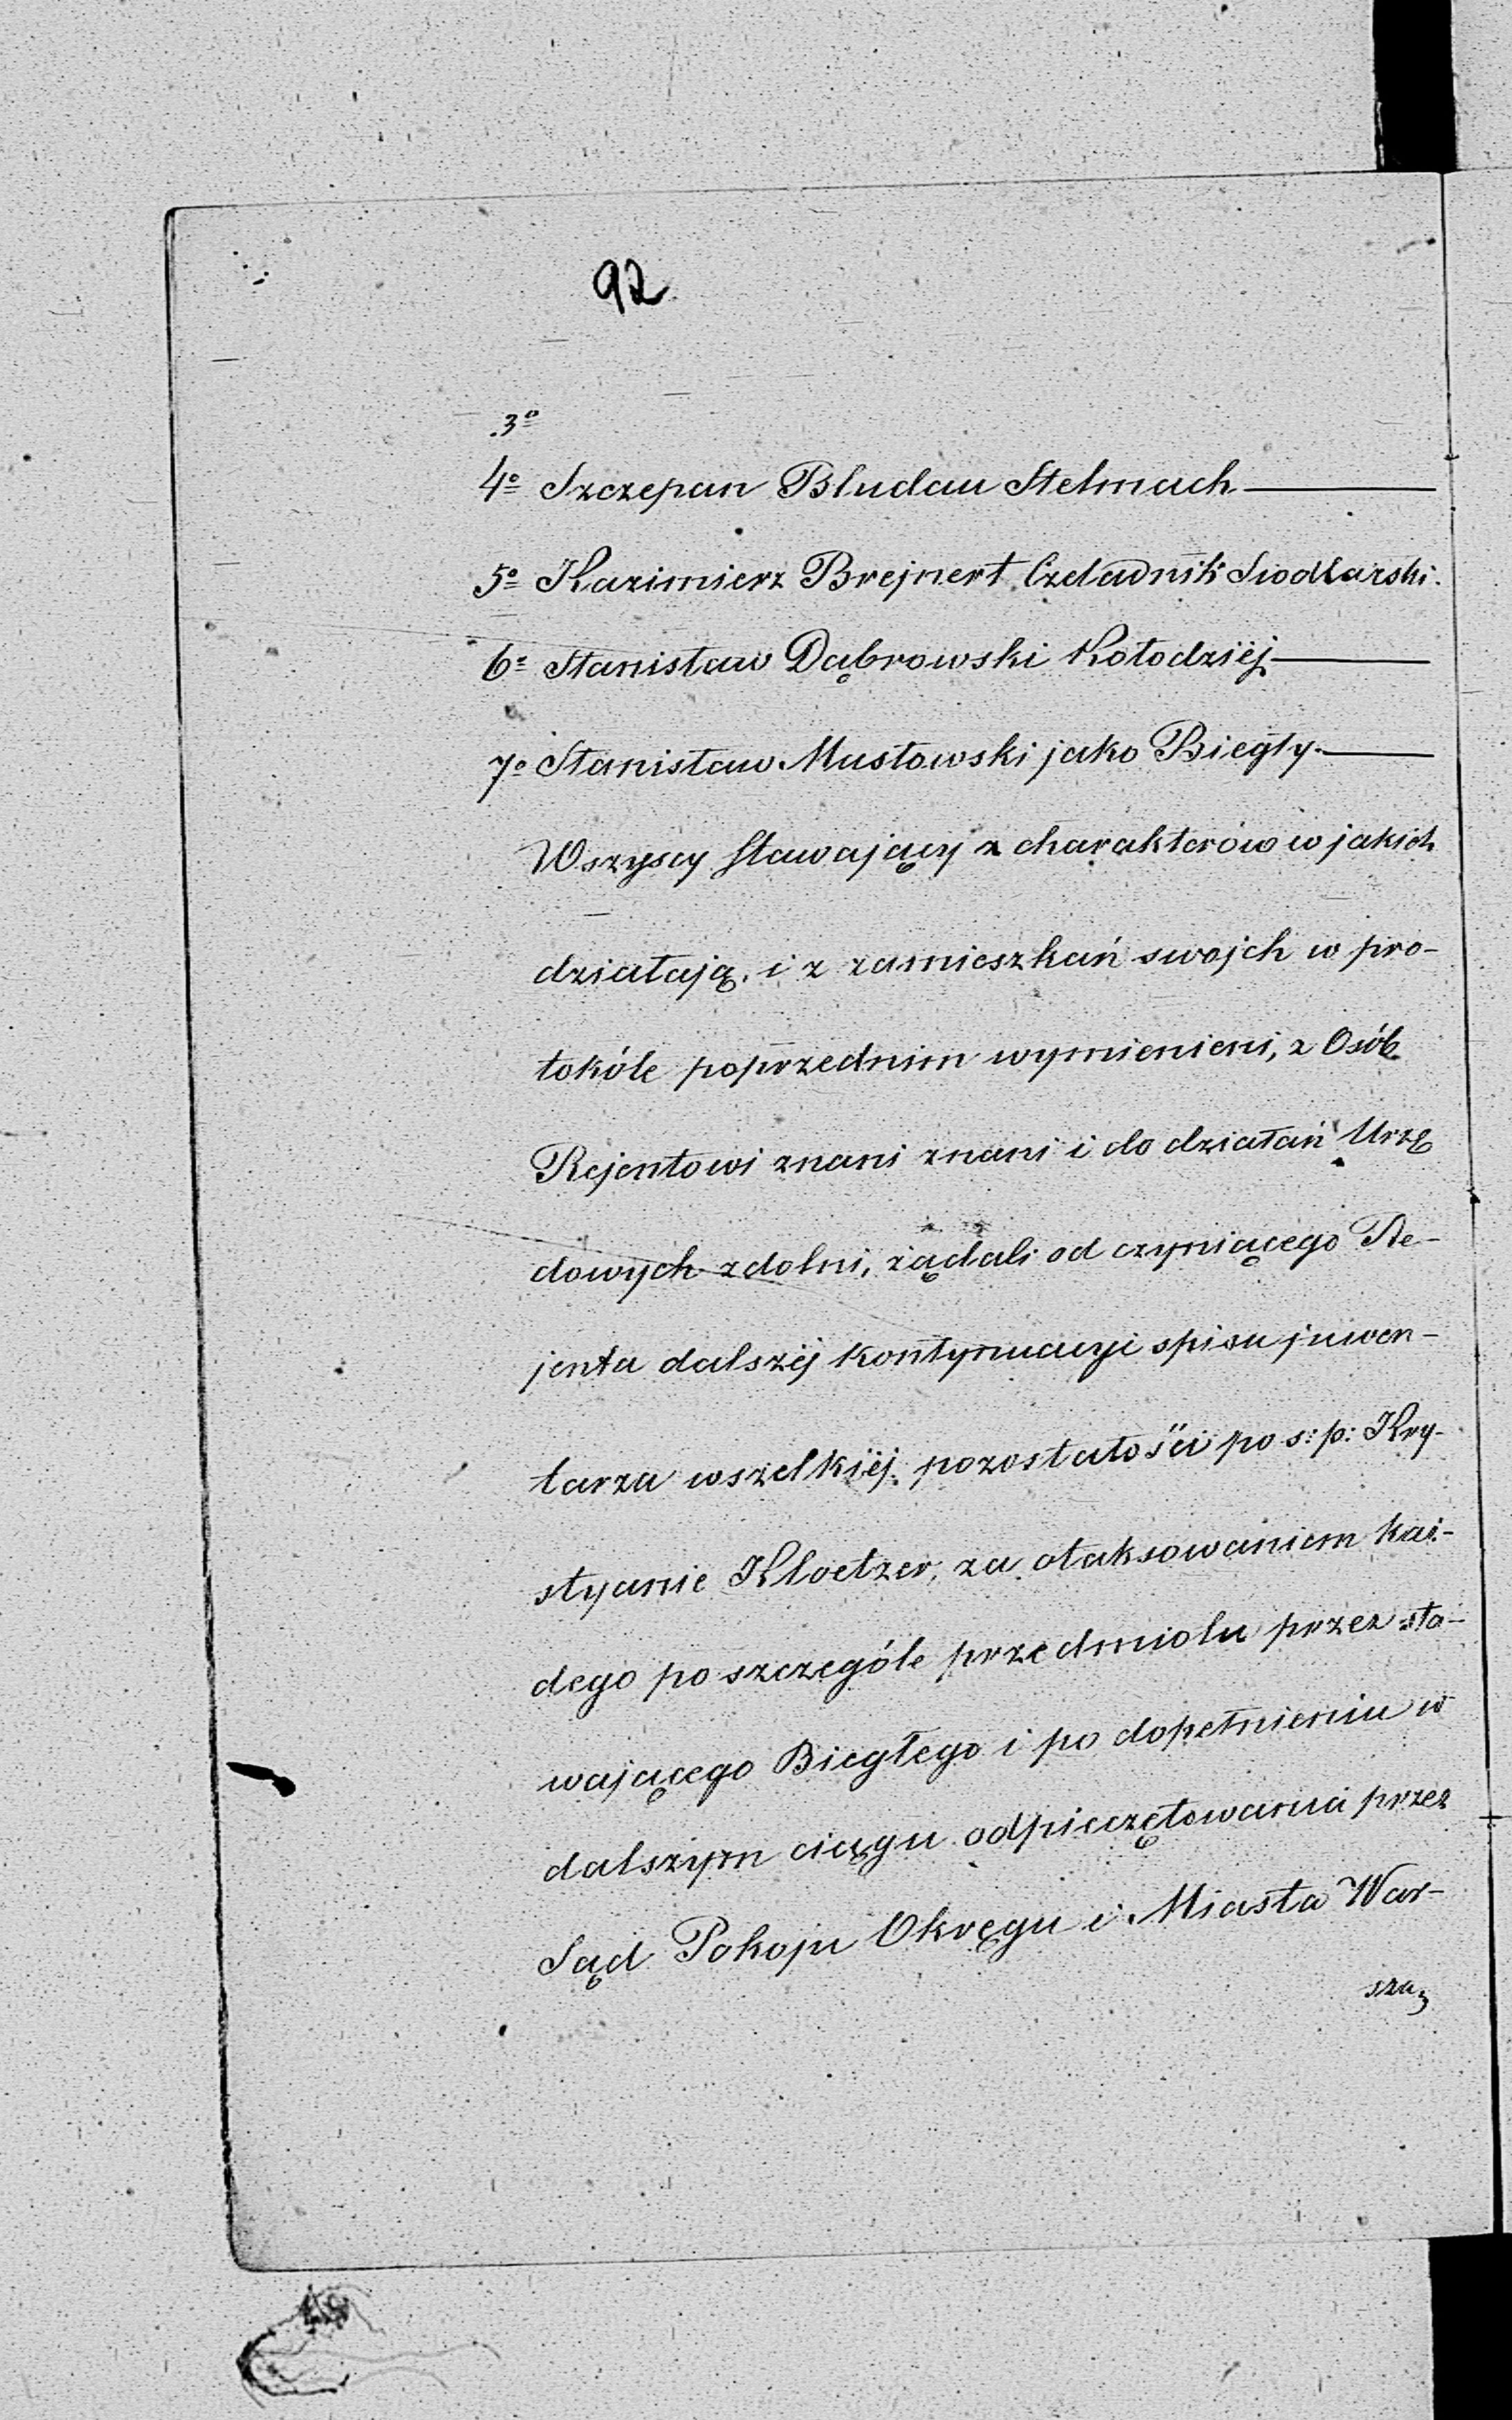 92
3º
4º Szczepan Bludau Stelmach
5º Kazimierz Brejnert Czeladnik Siodlarski.
6º Stanisław Dąbrowski Kołodziéj
7º Stanisław Musłowski jako Biegły.
Wszyscy stawający z charakterów w jakich
działają, i z zamieszkań swojch w pro-
tokóle poprzednim wymienieni, z Osób
Rejentowi znani znani i do działań Urzę
dowych zdolni, żądali od czyniącego Re-
jenta dalszéj kontynuacyi spisu juwen-
tarza wszelkiéj pozostałości po s: p: Kry-
styanie Kloetzer, za otaksowaniem każ-
dego po szczególe przedmiotu przez sta-
wającego Biegłego i po dopełnieniu w
dalszym ciągu odpieczętowania przez
Sąd Pokoju Okręgu i Miasta War-
sza